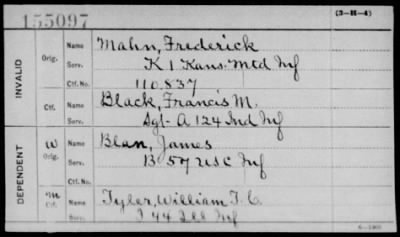 155097
(3-H-4)
INVALID
Orig.
Name Mahn, Frederick
Serv. K 1 Kans. Mtd Inf
Ctf. No. 110,837
Ctf.
Name Black, Francis M.
Serv. Sgt- A 124 Ind Inf
DEPENDENT
W
Orig.
Name Blan, James
Serv. B 57 USC Inf
Ctf. No.
M
Ctf.
Name Tyler, William T. C.
Serv. I 44 Ill Inf